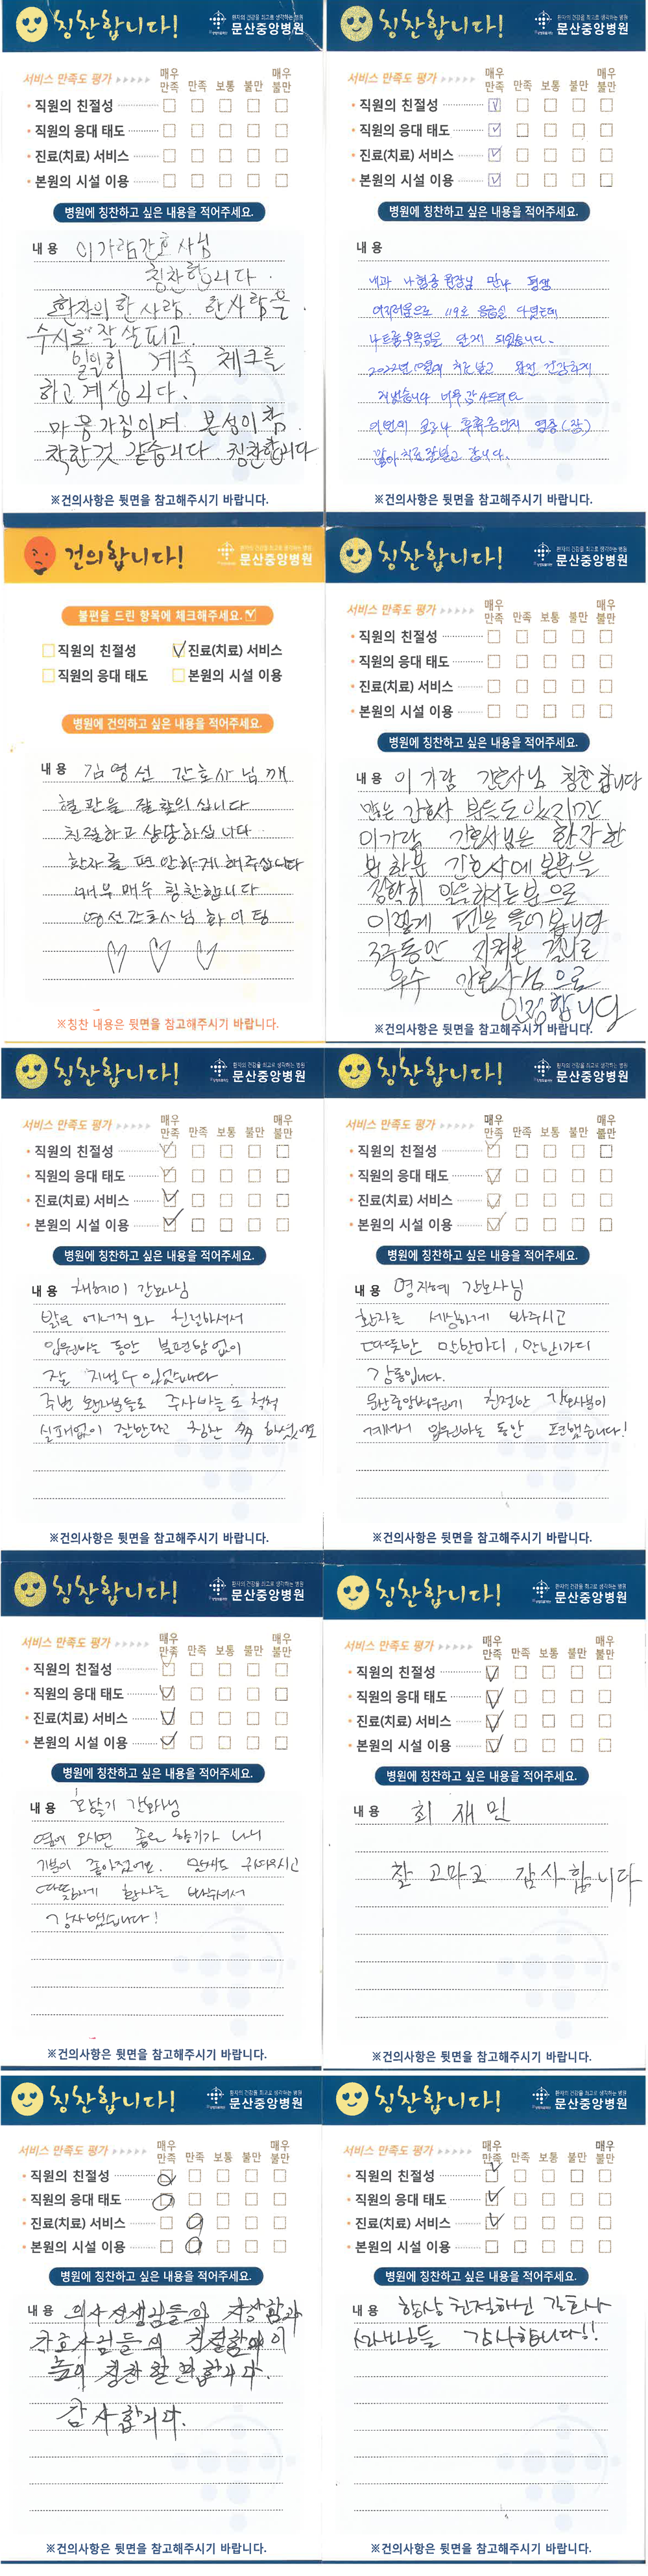 칭찬합니다!
환자의 건강을 최고로 생각하는 병원
문산중앙병원
서비스 만족도 평가
매우 만족 만족 보통 불만 매우 불만
직원의 친절성
직원의 응대 태도
진료(치료) 서비스
본원의 시설 이용
병원에 칭찬하고 싶은 내용을 적어주세요.
내용 이가람간호사님
칭찬합니다.
환자의 한사람. 한사람을
수시로 잘 살피고.
일일히 계속 체크를
하고계십니다.
마음가짐이며 본성이 참
착한것 같습니다 칭찬합니다
※건의사항은 뒷면을 참고해주시기 바랍니다.
칭찬합니다!
환자의 건강을 최고로 생각하는 병원
문산중앙병원
서비스 만족도 평가
매우 만족 만족 보통 불만 매우 불만
직원의 친절성
직원의 응대 태도
진료(치료) 서비스
본원의 시설 이용
병원에 칭찬하고 싶은 내용을 적어주세요.
내용
내과 원장님 만나 평생
어지러움으로 119로 응급실 다녔는데
나트륨 부족임을 알게 되었습니다.
2022년 치료받고 완전 건강하게
지냈습니다 너무 감사드려요
이번에 코로나 후유증인지 염증(장)
않아 치료 잘받고 갑니다.
※건의사항은 뒷면을 참고해주시기 바랍니다.
건의합니다!
환자의 건강을 최고로 생각하는 병원
문산중앙병원
불편을 드린 항목에 체크해주세요.
직원의 친절성 진료(치료) 서비스
직원의 응대 태도 본원의 시설 이용
병원에 건의하고 싶은 내용을 적어주세요.
내용 김영선 간호사님께
혈관을 잘 찾으십니다
친절하고 상냥하십니다
환자를 편안하게 해주십니다
매우 매우 칭찬합니다
영선간호사님 화이팅
※칭찬 내용은 뒷면을 참고해주시기 바랍니다.
칭찬합니다!
환자의 건강을 최고로 생각하는 병원
문산중앙병원
서비스 만족도 평가
매우 만족 만족 보통 불만 매우 불만
직원의 친절성
직원의 응대 태도
진료(치료) 서비스
본원의 시설 이용
병원에 칭찬하고 싶은 내용을 적어주세요.
내용 이가람 간호사님 칭찬합니다
많은 간호사 분들도 있지만
이가람 간호사님은 환자 한
분 한분 간호사에 본분을
정확히 일을하시는분으로
이렇게 펜을 들어 봅니다
3주동안 지켜본 결과로
우수 간호사님으로
인정합니다
※건의사항은 뒷면을 참고해주시기 바랍니다.
칭찬합니다!
환자의 건강을 최고로 생각하는 병원
문산중앙병원
서비스 만족도 평가
매우 만족 만족 보통 불만 매우 불만
직원의 친절성
직원의 응대 태도
진료(치료) 서비스
본원의 시설 이용
병원에 칭찬하고 싶은 내용을 적어주세요.
내용 채혜이 간호사님
밝은 에너지와 친절하셔서
입원하는 동안 불편함없이
잘 지낼수 있었습니다
주변 환자분들도 주사바늘도 척척
실패없이 잘한다고 칭찬 하셨어요
※건의사항은 뒷면을 참고해주시기 바랍니다.
칭찬합니다!
환자의 건강을 최고로 생각하는 병원
문산중앙병원
서비스 만족도 평가
매우 만족 만족 보통 불만 매우 불만
직원의 친절성
직원의 응대 태도
진료(치료) 서비스
본원의 시설 이용
병원에 칭찬하고 싶은 내용을 적어주세요.
내용 명지혜 간호사님
환자를 세심하게 봐주시고
따뜻한 말한마디, 한마디가
감동입니다.
문산중앙병원에 친절한 간호사분이
계셔서 입원하는 동안 편했습니다!
※건의사항은 뒷면을 참고해주시기 바랍니다.
칭찬합니다!
환자의 건강을 최고로 생각하는 병원
문산중앙병원
서비스 만족도 평가
매우 만족 만족 보통 불만 매우 불만
직원의 친절성
직원의 응대 태도
진료(치료) 서비스
본원의 시설 이용
병원에 칭찬하고 싶은 내용을 적어주세요.
내용 간호사님
옆에 오시면 좋은 향기가 나니
기분이 좋아졌어요.
따뜻하게 환자를 봐주셔서
감사했습니다!
※건의사항은 뒷면을 참고해주시기 바랍니다.
칭찬합니다!
환자의 건강을 최고로 생각하는 병원
문산중앙병원
서비스 만족도 평가
매우 만족 만족 보통 불만 매우 불만
직원의 친절성
직원의 응대 태도
진료(치료) 서비스
본원의 시설 이용
병원에 칭찬하고 싶은 내용을 적어주세요.
내용 최재민
참 고마고 감사합니다
※건의사항은 뒷면을 참고해주시기 바랍니다.
칭찬합니다!
환자의 건강을 최고로 생각하는 병원
문산중앙병원
서비스 만족도 평가
매우 만족 만족 보통 불만 매우 불만
직원의 친절성
직원의 응대 태도
진료(치료) 서비스
본원의 시설 이용
병원에 칭찬하고 싶은 내용을 적어주세요.
내용 의사선생님들의 자상함과
간호사님들의 친절함에
높이 칭찬할만합니다.
감사합니다.
※건의사항은 뒷면을 참고해주시기 바랍니다.
칭찬합니다!
환자의 건강을 최고로 생각하는 병원
문산중앙병원
서비스 만족도 평가
매우 만족 만족 보통 불만 매우 불만
직원의 친절성
직원의 응대 태도
진료(치료) 서비스
본원의 시설 이용
병원에 칭찬하고 싶은 내용을 적어주세요.
내용 항상 친절하신 간호사
선생님들 감사합니다!!
※건의사항은 뒷면을 참고해주시기 바랍니다.